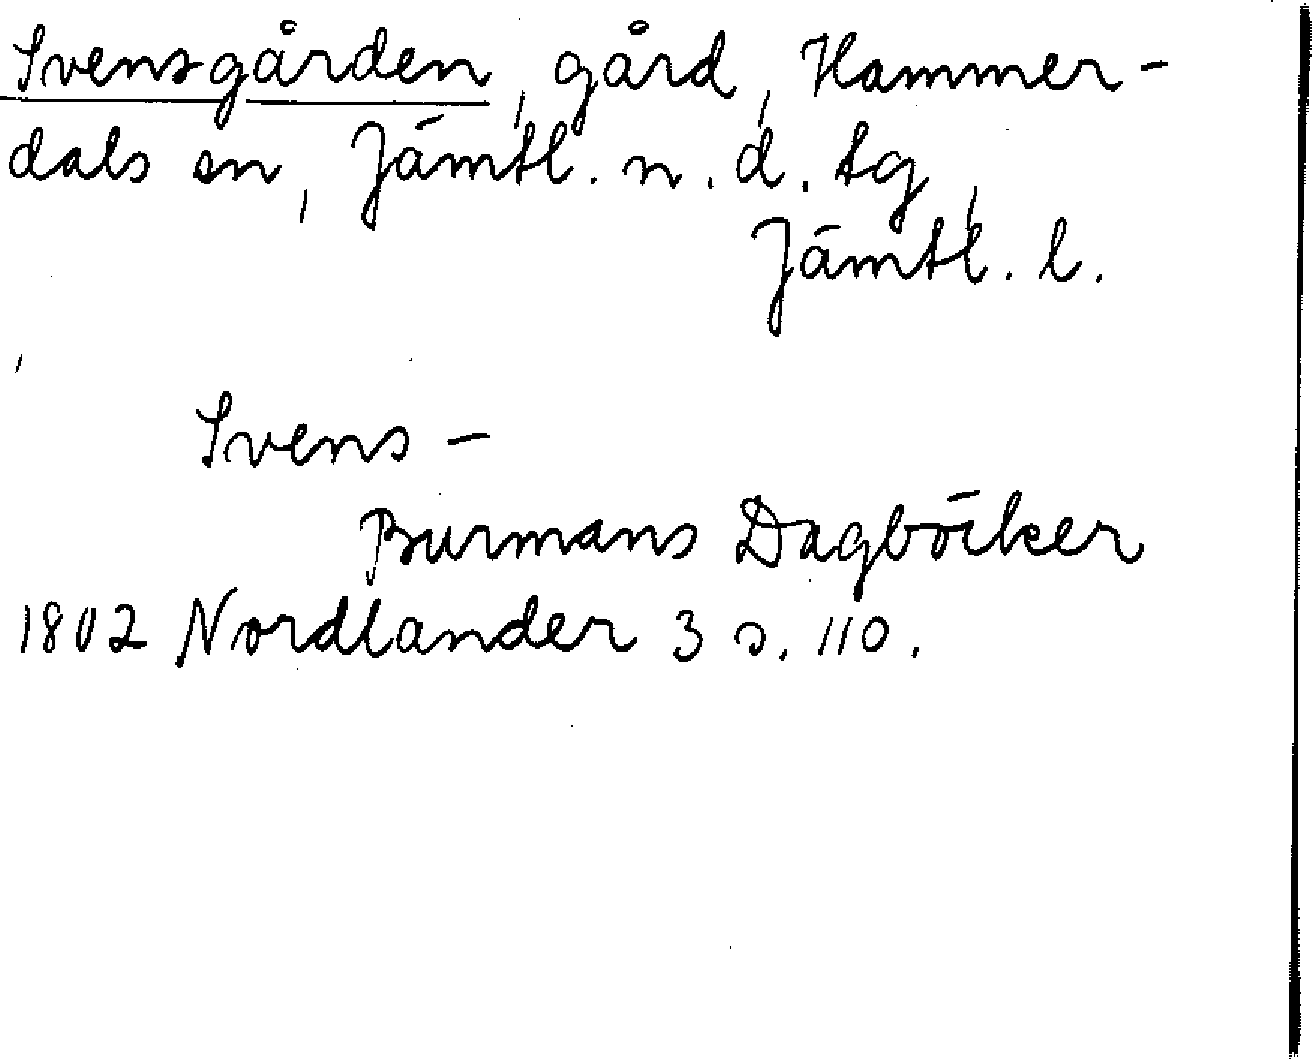 Svensgården, gård, Hammer-
dals sn, Jämtl. n. d. tg,
Jämtl. l.
Svens-
Burmans Dagböcker
1802 Nordlander 3 s. 110.